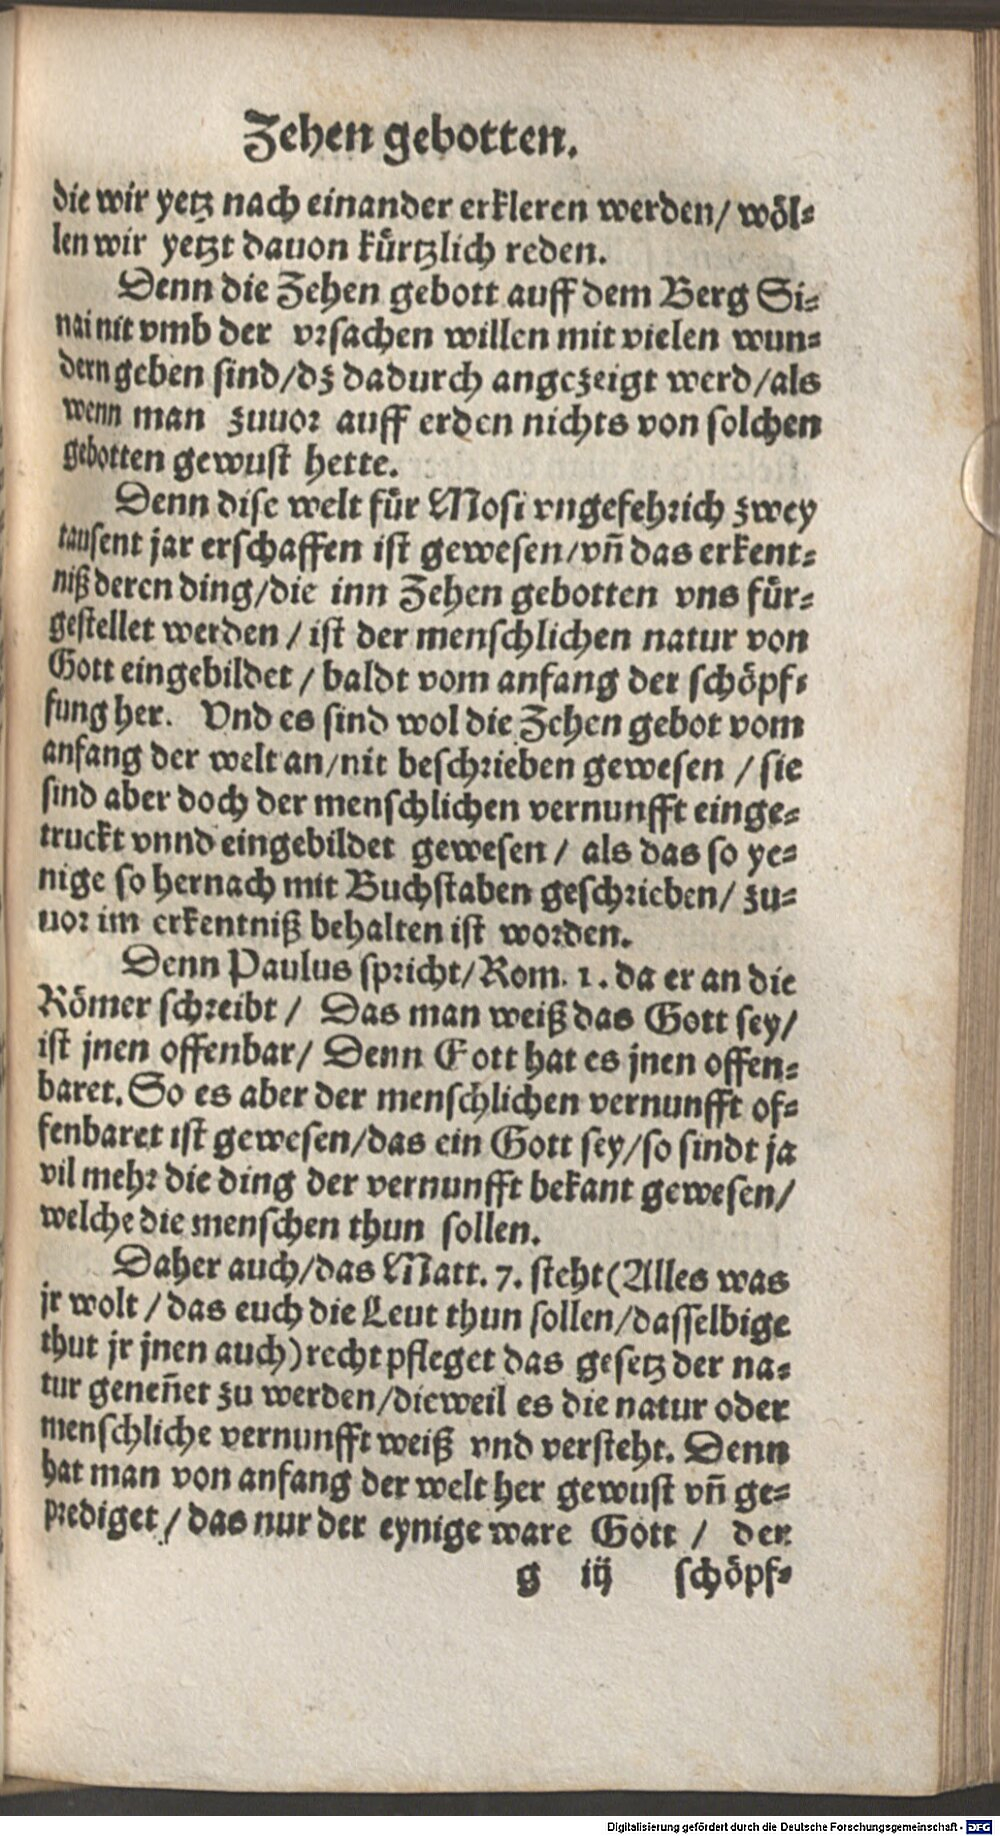 Zehen gebotten.
die wir yetz nach einander erkleren werden/ wöl-
len wir yetzt dauon kürtzlich reden.
Denn die Zehen gebott auff dem Berg Si-
nai nit vmb der vrsachen willen mit vielen wun-
dern geben sind/dz dadurch angezeigt werd/als
wenn man zuuor auff erden nichts von solchen
gebotten gewust hette.
Denn dise welt für Mosi vngefehrich zwey
tausent jar erschaffen ist gewesen/vn̄ das erkent-
niß deren ding/die inn Zehen gebotten vns für-
gestellet werden / ist der menschlichen natur von
Gott eingebildet / baldt vom anfang der schöpf-
fung her. Vnd es sind wol die Zehen gebot vom
anfang der welt an/nit beschrieben gewesen / sie
sind aber doch der menschlichen vernunfft einge-
truckt vnnd eingebildet gewesen / als das so ye-
nige so hernach mit Buchstaben geschrieben/ zu-
uor im erkentniß behalten ist worden.
Denn Paulus spricht/Rom. 1. da er an die
Römer schreibt / Das man weiß das Gott sey/
ist jnen offenbar/ Denn Gott hat es jnen offen-
baret. So es aber der menschlichen vernunfft of-
fenbaret ist gewesen/das ein Gott sey/so sindt ja
vil mehr die ding der vernunfft bekant gewesen/
welche die menschen thun sollen.
Daher auch/das Matt. 7. steht(Alles was
jr wolt / das euch die Leut thun sollen/dasselbige
thut jr jnen auch)recht pfleget das gesetz der na-
tur genen̄et zu werden/dieweil es die natur oder
menschliche vernunfft weiß vnd versteht. Denn
hat man von anfang der welt her gewust vn̄ ge-
prediget / das nur der eynige ware Gott / der
g iij schöpf-
Digitalisierung gefördert durch die Deutsche Forschungsgemeinschaft - DFG